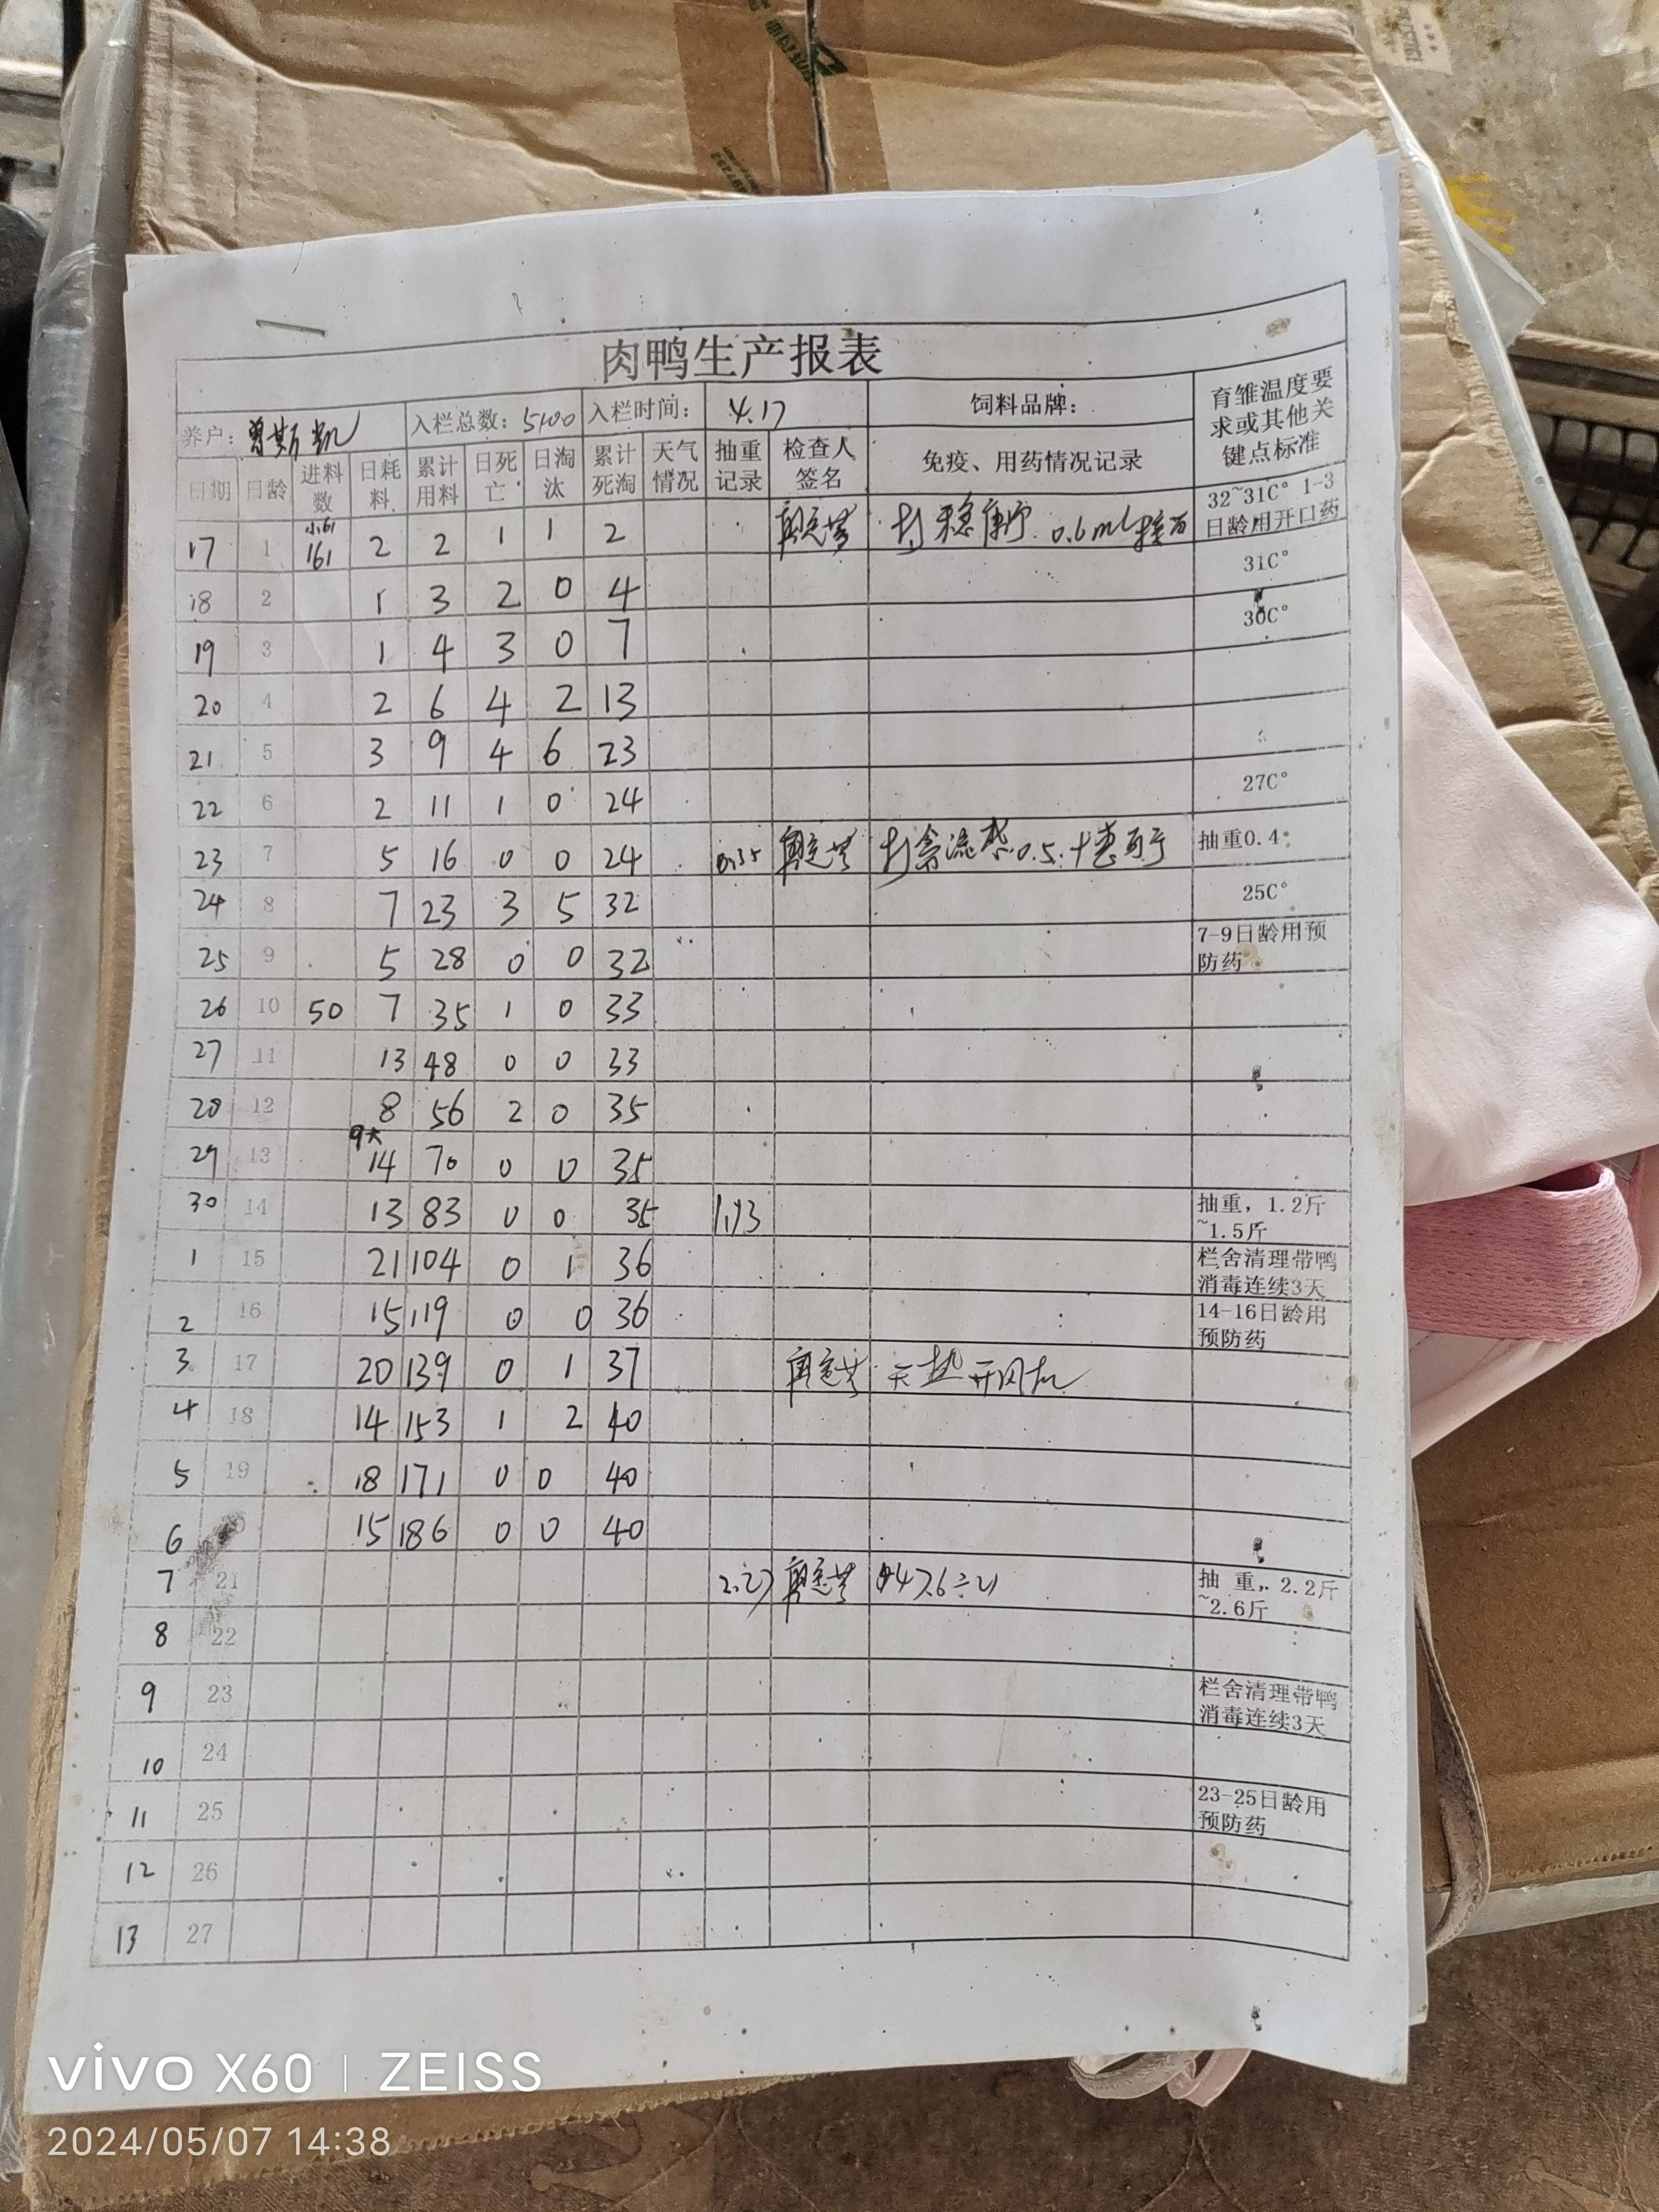 肉鸭生产报表
养户: 曾斯凯 入栏总数: 5100 入栏时间: 4.17 饲料品牌: 育雏温度要求或其他关键点标准
日期 日龄 进料数 日耗料 累计用料 日死亡 日淘汰 累计死淘 天气情况 抽重记录 检查人签名 免疫、用药情况记录
17 1 小61 161 2 2 1 1 2 打 0.6ml 32~31C° 1-3日龄用开口药
18 2 1 3 2 0 4 31C°
19 3 1 4 3 0 7 30C°
20 4 2 6 4 2 13
21 5 3 9 4 6 23
22 6 2 11 1 0 24 27C°
23 7 5 16 0 0 24 0.35 打禽流感0.5 抽重0.4
24 8 7 23 3 5 32 25C°
25 9 5 28 0 0 32 7-9日龄用预防药
26 10 50 7 35 1 0 33
27 11 13 48 0 0 33
28 12 8 56 2 0 35
29 13 9大 14 70 0 0 35
30 14 13 83 0 0 35 1.13 抽重，1.2斤~1.5斤
1 15 21 104 0 1 36 栏舍清理带鸭消毒连续3天
2 16 15 119 0 0 36 14-16日龄用预防药
3 17 20 139 0 1 37 天热开风机
4 18 14 153 1 2 40
5 19 18 171 0 0 40
6 15 186 0 0 40
7 21 2.27 47.6÷21 抽 重，2.2斤~2.6斤
8 22
9 23 栏舍清理带鸭消毒连续3天
10 24
11 25 23-25日龄用预防药
12 26
13 27
vivo X60 | ZEISS
2024/05/07 14:38